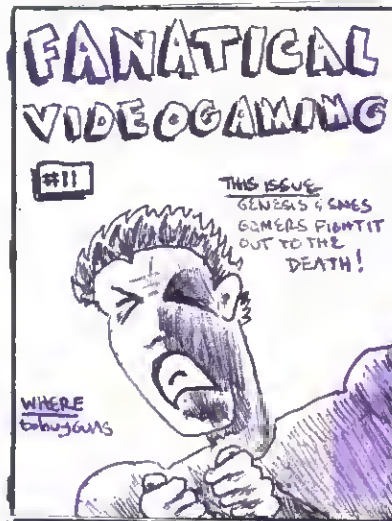 FANATICAL
VIDEOGAMING
#11
THIS ISSUE
GENESIS & SNES
GAMERS FIGHT IT
OUT TO THE
DEATH!
WHERE
to buy GUNS